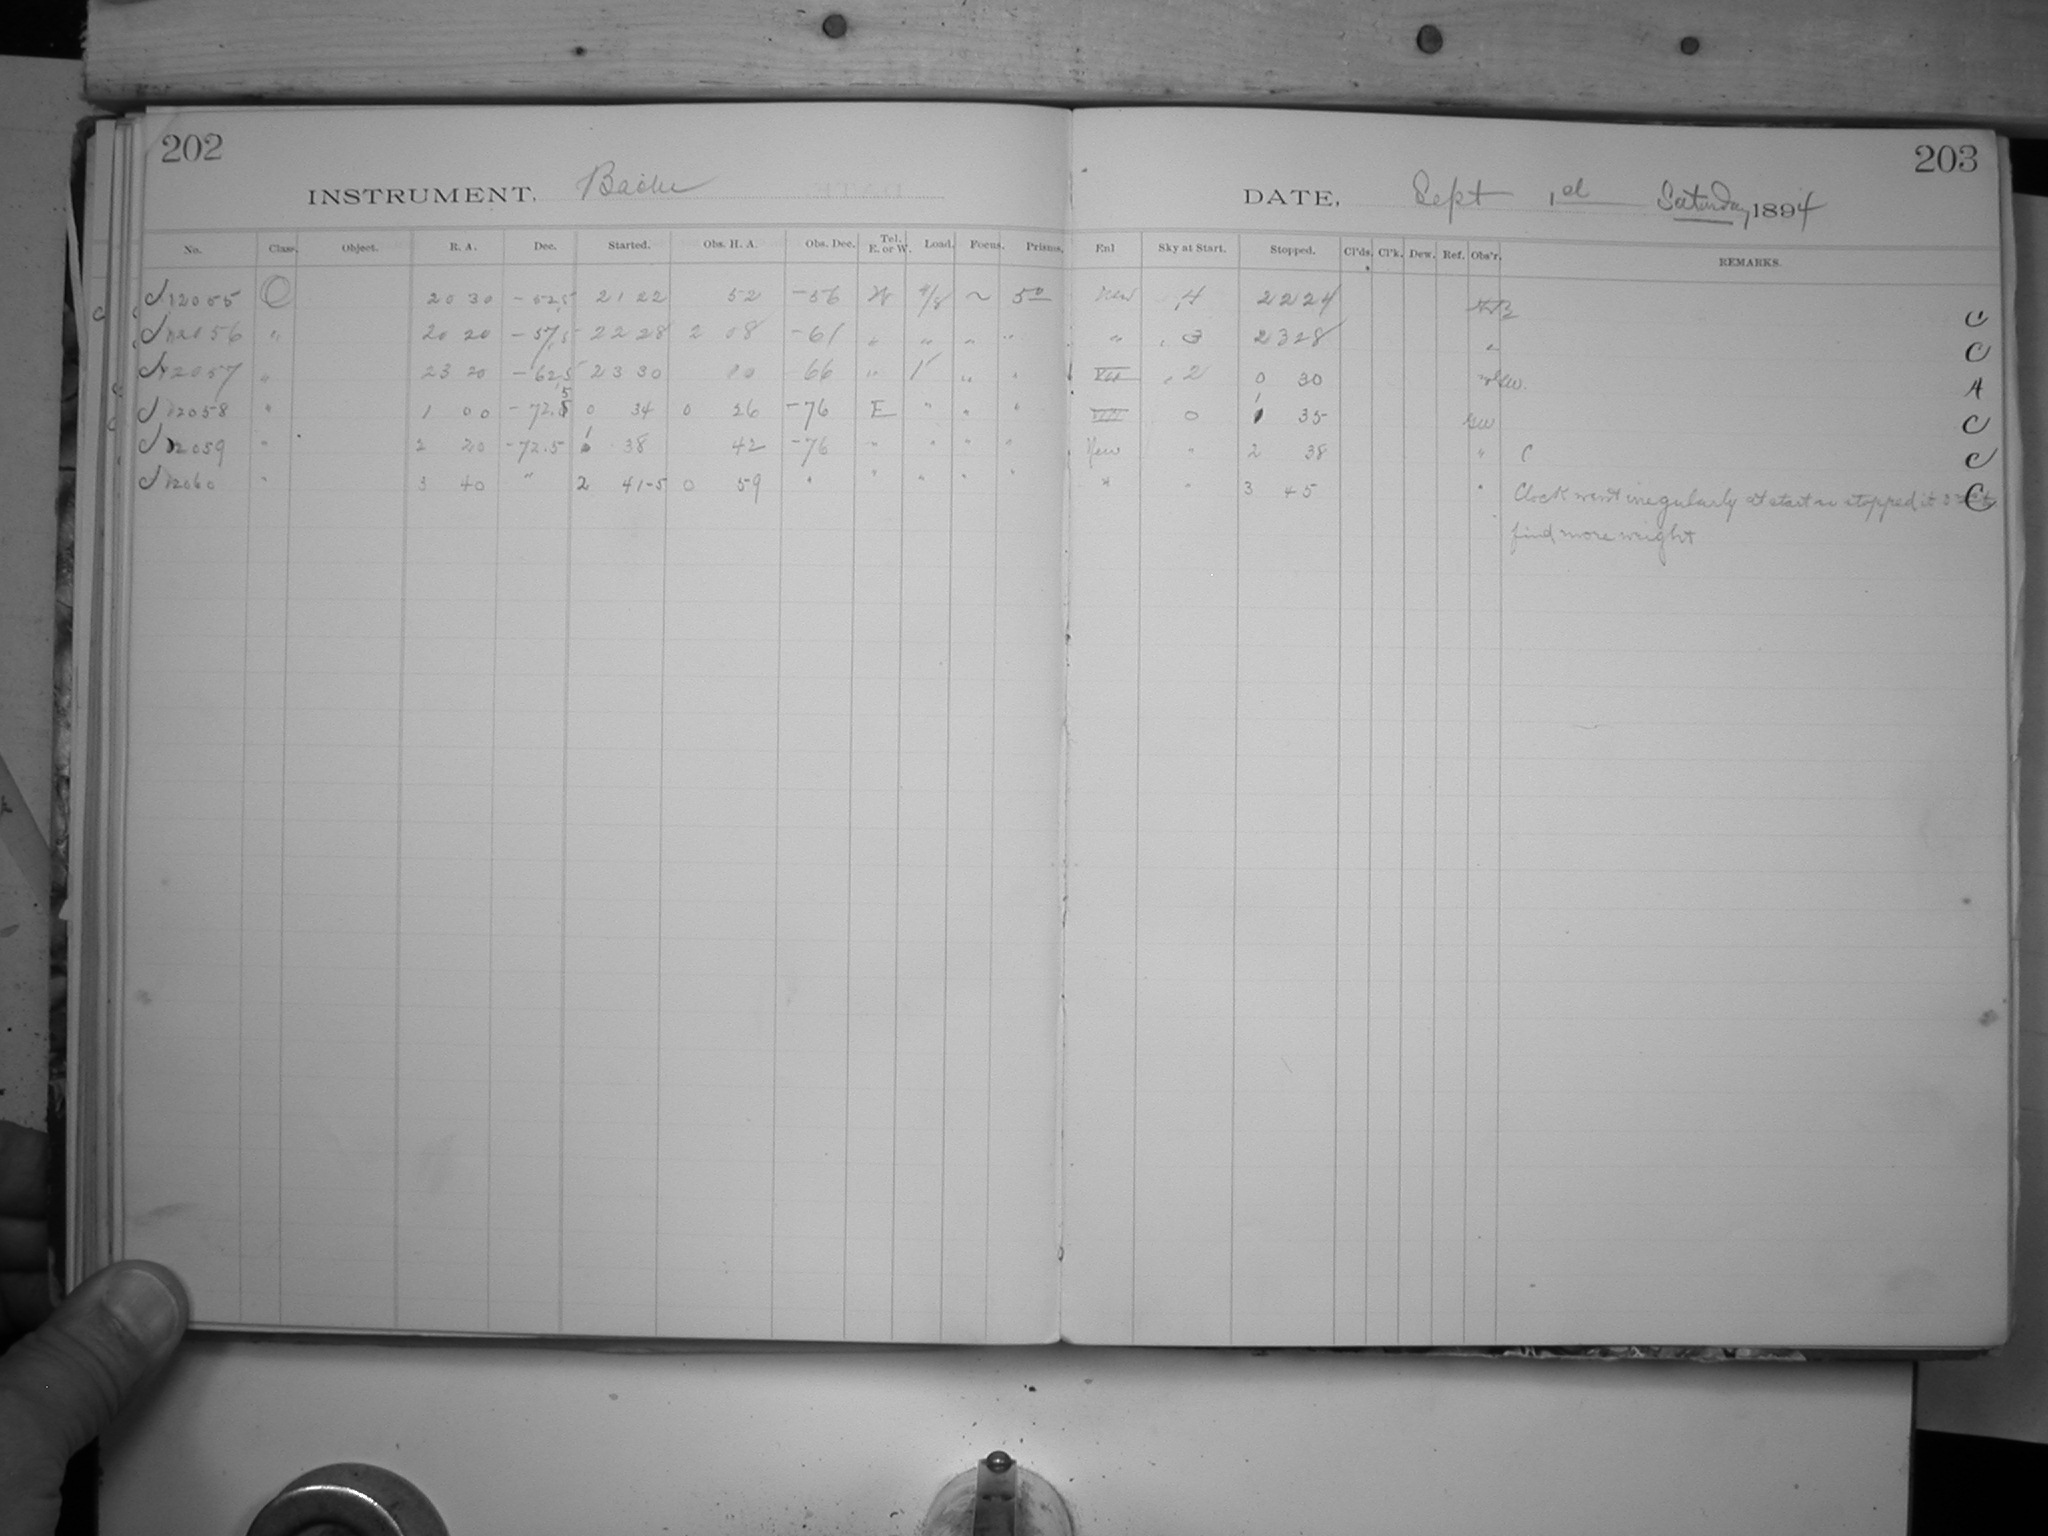 202
203
INSTRUMENT, Bache
DATE, Sept 1st Saturday, 1894
No. Class. Object. R. A. Dec. Started. Obs. H. A. Obs. Dec. Tel. E. or W. Load. Focus. Prisms. Enl Sky at Start. Stopped. Cl'ds. Cl'k. Dew. Ref. Obs'r. REMARKS.
12055 C 20 30 - 52.5 21 22 52 -56 W 9/8 ~ 50 New 4 22 24 C
12056 " 20 20 - 57.5 22 28 2 08 -61 " " " " " 3 23 28 " C
12057 " 23 20 - 62.5 23 30 10 66 " 1 " " VII 2 0 30 A
12058 " 1 00 - 72.5 0 34 0 26 -76 E " " " VIII 0 1 35 C
12059 " 2 20 -72.5 1 38 42 -76 " " " " New " 2 38 " C C
12060 " 3 40 " 2 41-5 0 59 " " " " " " " 3 45 " Clock went irregularly at start so stopped it C
find more weight